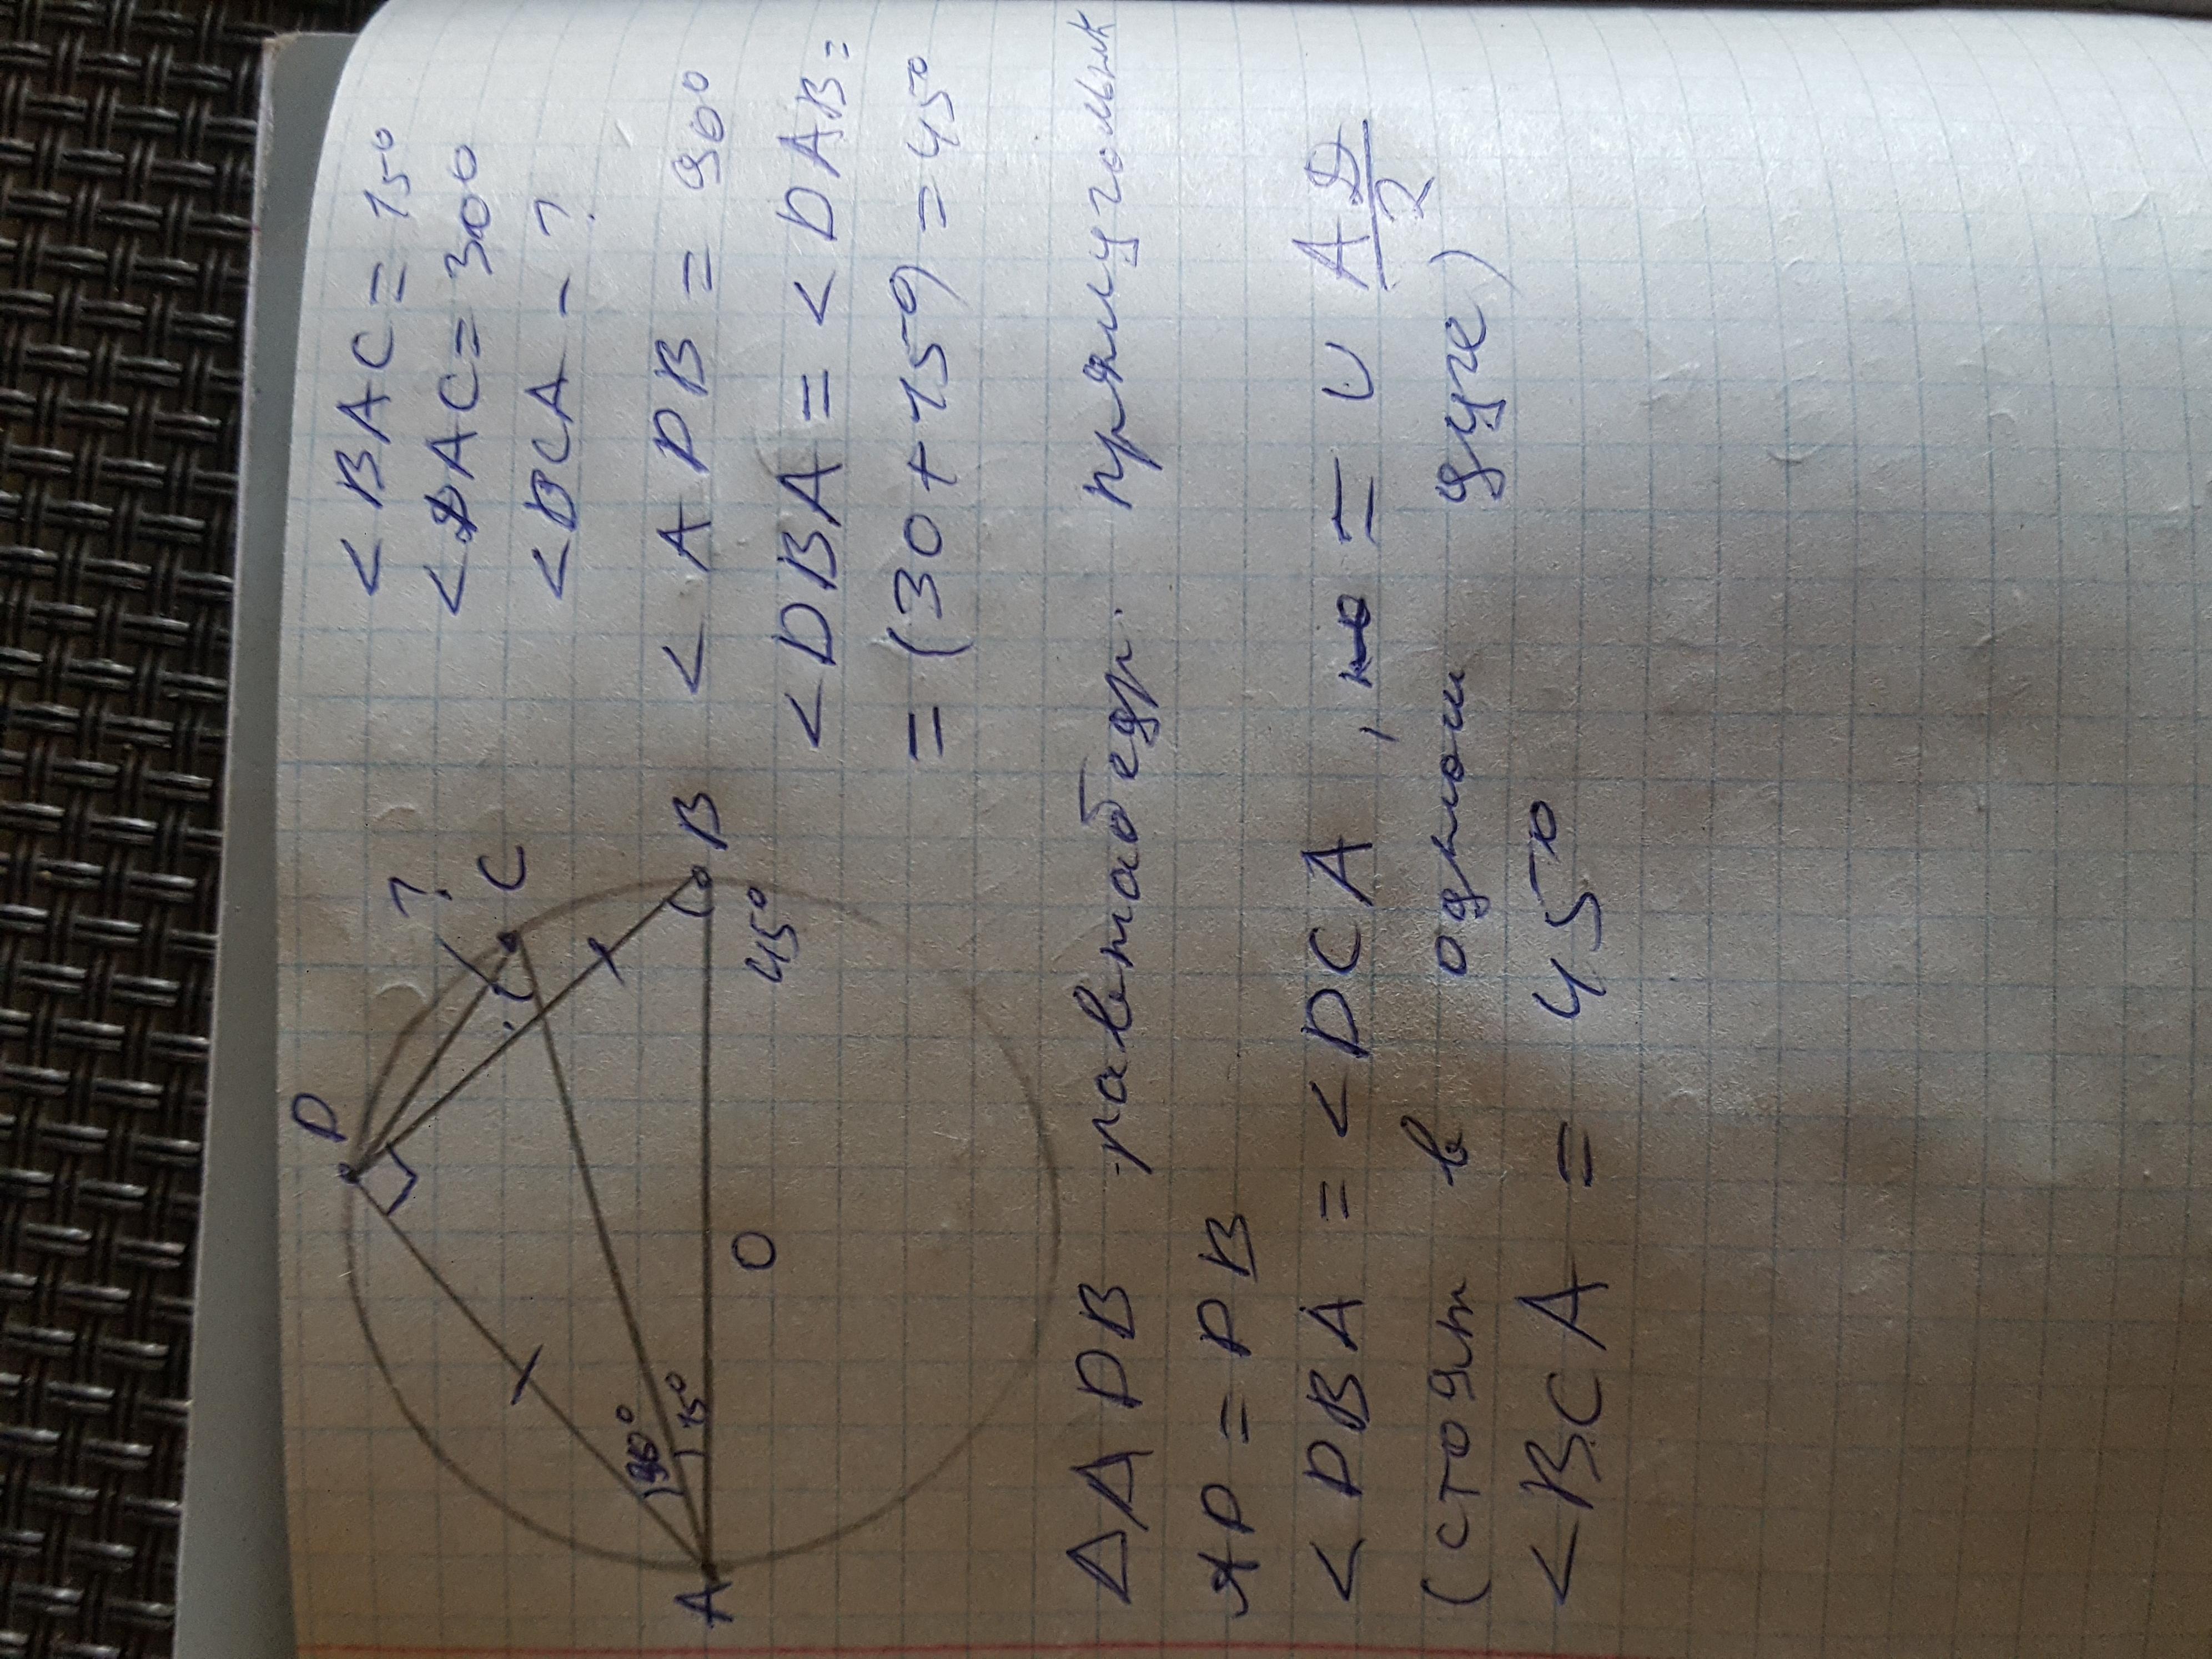 D
? C
B
45°
O
A
30°
15°
< BAC = 15°
< DAC = 300
< DCA - ?
< ADB = 90°
< DBA = < DAB =
= (30 + 15°) = 45°
Δ ADB равнабедр. прямугольник
AD = DB
< DBA = < DCA, = ∪ AД/2
(стоят в одной дуге)
< BCA = 45°